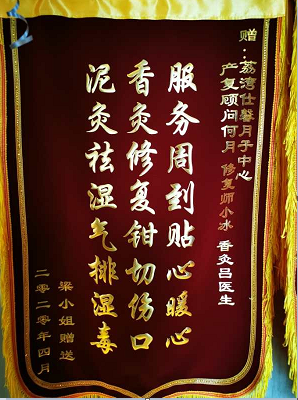 赠：荔湾仕馨月子中心
产复顾问何月 修复师小冰 香灸吕医生
服务周到贴心暖心
香灸修复钳切伤口
泥灸祛湿气排湿毒
梁小姐赠送
二零二零年四月